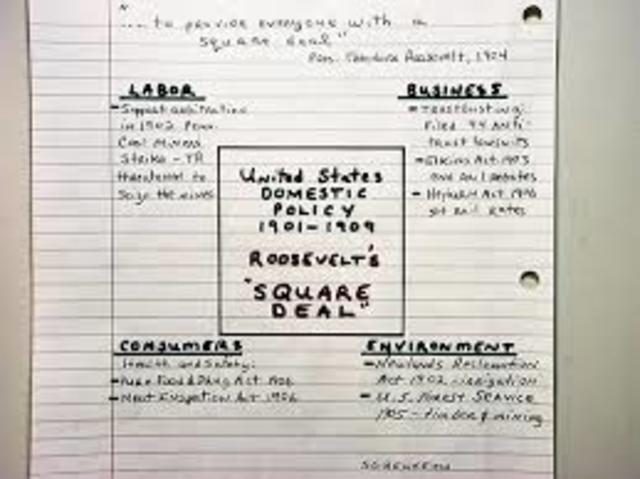 "... to provide everyone with a
square deal"
Pres. Theodore Roosevelt, 1904
LABOR
- Support arbitration
in 1902 Penn.
Coal Miners
Strike - TR
threatened to
seize the mines
BUSINESS
- Trustbusting:
Filed 44 Anti-
trust lawsuits
- Elkins Act 1903
end rail rebates
- Hepburn Act 1906
set rail rates
United States
DOMESTIC
POLICY
1901-1909
ROOSEVELT'S
"SQUARE
DEAL"
CONSUMERS
Health and Safety:
- Pure Food & Drug Act 1906
- Meat Inspection Act 1906
ENVIRONMENT
- Newlands Reclamation
Act 1902 - irrigation
- U.S. Forest Service
1905 - timber & mining